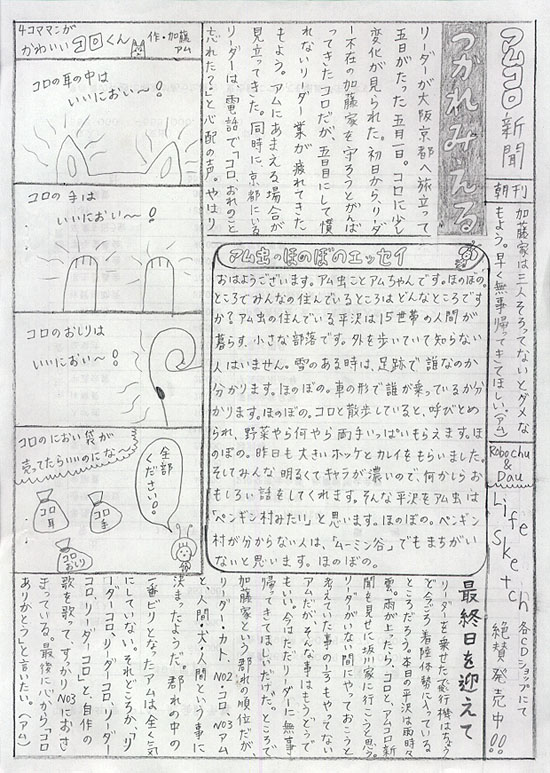 アムコロ新聞
朝刊
加藤家は三人そろってないとダメな
もよう。早く無事帰ってきてほしい(アム)
Robochu
&
Dau
Life Sketch
各CDショップにて
絶賛発売中!!
つかれみえる
リーダーが大阪京都へ旅立って
五日がたった五月一日。コロに少し
変化が見られた。初日から、リーダ
ー不在の加藤家を守ろうとがんば
ってきたコロだが、五日目にして慣
れないリーダー業が疲れてきた
もよう。アムにあまえる場合が
見立ってきた。同時に、京都にいる
リーダーは、電話で「コロ、おれのこと
忘れたろ?」と心配の声。やはり
4コママンが
かわいいコロくん
作・加藤アム
コロの耳の中は
いいにおい〜!
コロの手は
いいにおい〜!
コロのおしりは
いいにおい〜!
コロのにおい袋が
売ってたらいいのにな〜
全部
ください!!
コロ
耳
コロ
手
コロ
おしり
アム虫のほのぼのエッセイ
おはようございます。アム虫ことアムちゃんです。ほのぼの。
ところでみんなの住んでいるところはどんなところです
か?アム虫の住んでいる平沢は15世帯の人間が
暮らす、小さな部落です。外を歩いていて知らない
人はいません。雪のある時は、足跡で誰なのか
分かります。ほのぼの。車の形で誰が乗っているか分
かります。ほのぼの。コロと散歩していると、呼びとめ
られ、野菜やら何やら両手いっぱいもらえます。ほ
のぼの。昨日も大きいホッケとカレイをもらいました。
そしてみんな明るくてキャラが濃いので、何かしらお
もしろい話をしてくれます。そんな平沢をアム虫は
「ペンギン村みたい」と思います。ほのぼの。ペンギン
村が分からない人は、「ムーミン谷」でもまちがい
ないと思います。ほのぼの。
最終日を迎えて
リーダーを乗せた飛行機はちょう
ど今ごろ着陸体勢に入っている
ところだろう。本日の平沢は雨時々
雲。雨が上ったら、コロと、アムコロ新
聞を見せに坂川家に行こうと思う。
リーダーがいない間にやっておこうと
考えていた事の一つもやってない
アムだが、そんな事はもうどうで
もいい。今はただリーダーに無事
帰ってきてほしいだけだ。ところで
加藤家という群れの順位だが、
リーダー・カト、NO2・コロ、NO3・アム
と、人間・犬・人間という事に
決まったようだ。群れの中の
一番ビリとなったアムは、全く気
にしていない。それどころか、「リ
ーダーコロ、リーダーコロ、リーダー
コロ、リーダーコロ」と、自作の
歌を歌って、すっかりNO3におさ
まっている。最後に心から「コロ
ありがとう」と言いたい。(アム)